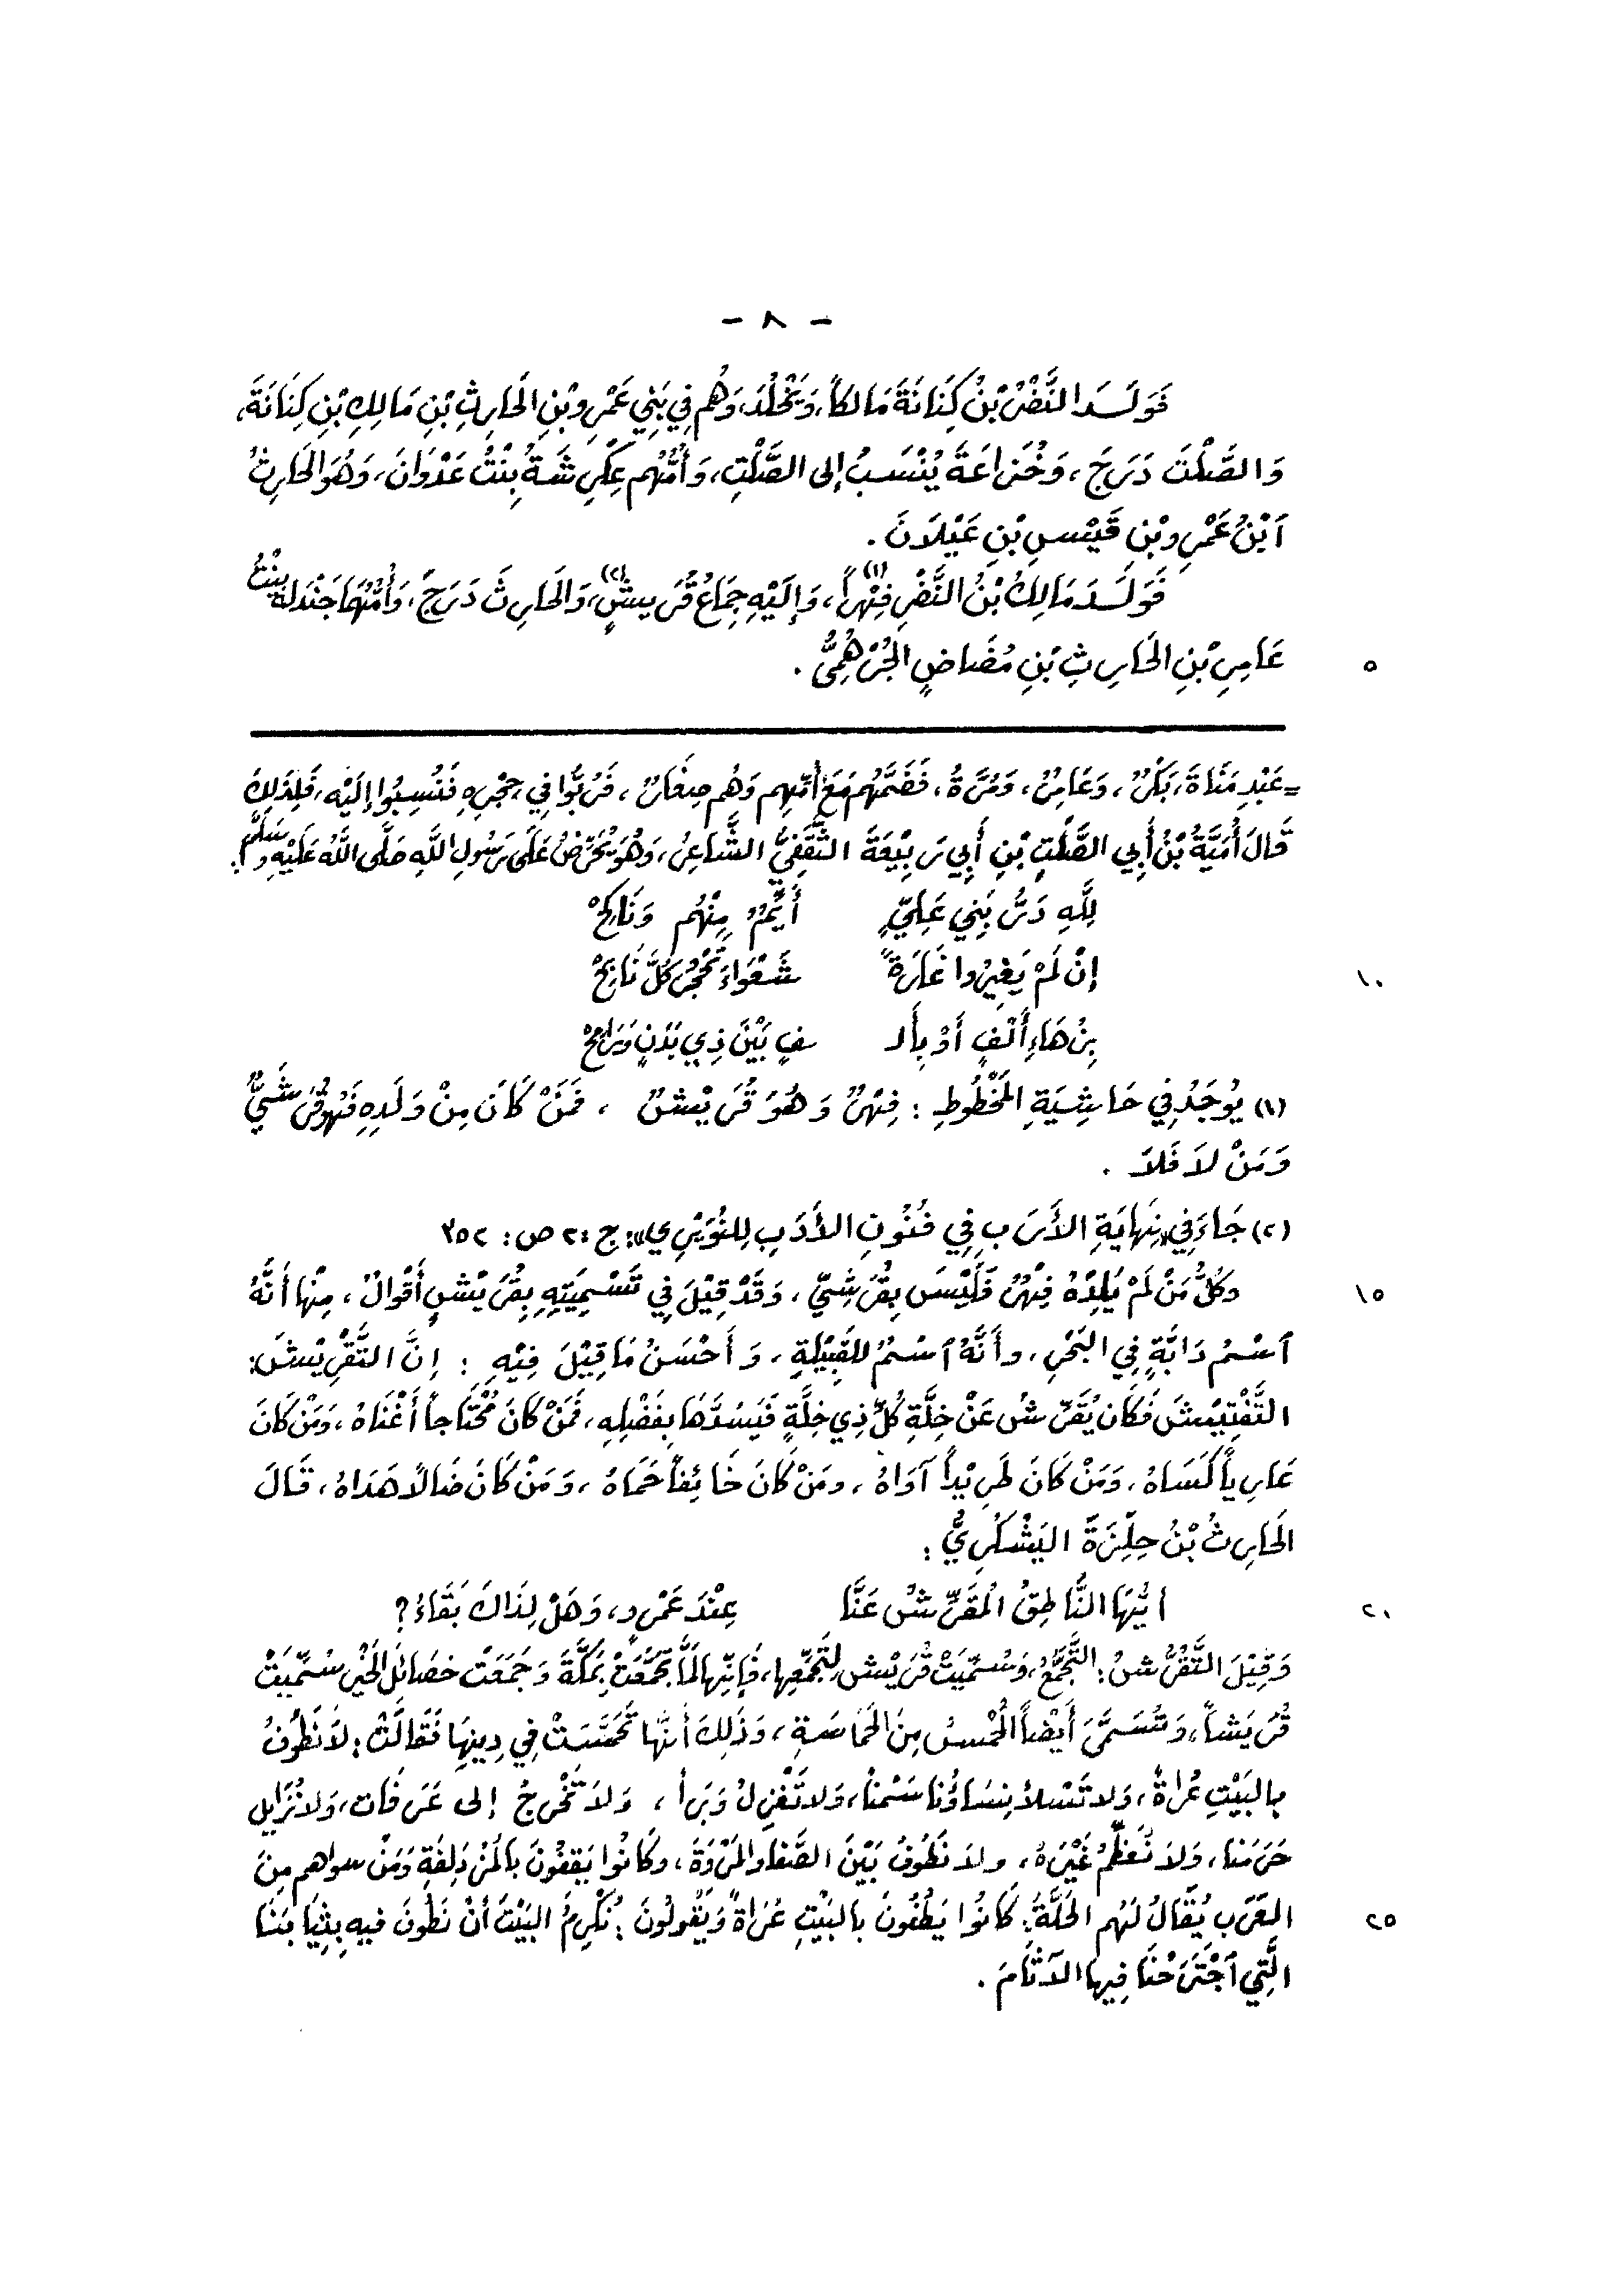 - ٨ -
فَوَلَدَ النَّضْرُ بْنُ كِنَانَةَ مَالِكاً، وَيَخْلُدَ، وَهُم فِي بَنِي عَمْرِو بْنِ الحَارِثِ بْنِ مَالِكِ بْنِ كِنَانَةَ،
وَالصَّلْتَ دَرَجَ، وَخُزَاعَةَ يُنْسَبُ إِلى الصَّلْتِ، وَأُمُّهُم عِكْرِشَةُ بِنْتُ عَدْوَانَ، وَهُوَ الحَارِثُ
آبْنُ عَمْرِو بْنِ قَيْسِ بْنِ عَيْلَانَ.
فَوَلَدَ مَالِكُ بْنُ النَّضْرِ فِهْراً(١)، وَإِلَيْهِ جِمَاعُ قُرَيشٍ(٢)، وَالحَارِثَ دَرَجَ، وَأُمُّهُمَا جَنْدَلَةُ بِنْتُ
عَامِرِ بْنِ الحَارِثِ بْنِ مُضَاضٍ الجُرْهُمِيُّ.
٥
= عَبْدِ مَنَاةَ، بَكْرٌ، وَعَامِرٌ، وَمُرَّةُ، فَضَمَّهُم مَعَ أُمِّهِم وَهُم صِغَارٌ، فَرُبُّوا فِي حِجْرِهِ فَنُسِبُوا إِلَيْهِ، فَلِذَلِكَ
قَالَ أُمَيَّةُ بْنُ أَبِي الصَّلْتِ بْنِ أَبِي رَبِيْعَةَ الثَّقَفِيُّ الشَّاعِرُ، وَهُوَ يُحَرِّضُ عَلَى رَسُولِ اللَّهِ صَلَّى اللَّهُ عَلَيْهِ وَسَلَّمَ:
لِلَّهِ دَرُّ بَنِي عَلِيٍّ أَيِّمٌ مِنْهُم وَنَاكِحْ
إِنْ لَمْ يَغِيْرُوا غَارَةً شَعْوَاءَ تُحْجِرُ كُلَّ نَابِحْ
١٠
بِزُهَاءِ أَلْفٍ أَوْ بِأَلـ ـفٍ بَيْنَ ذِي بَدَنٍ وَرَامِحْ
(١) يُوجَدُ فِي حَاشِيَةِ المَخْطُوطِ: فِهْرٌ وَهُوَ قُرَيْشٌ، فَمَنْ كَانَ مِنْ وَلَدِهِ فَهُوَ قُرَشِيٌّ
وَمَنْ لَا فَلَا.
(٢) جَاءَ فِي «نِهَايَةِ الأَرَبِ فِي فُنُونِ الأَدَبِ لِلنُوَيْرِي»: ج: ٢ ص: ٣٥٢
وَكُلُّ مَنْ لَمْ يَلِدْهُ فِهْرٌ فَلَيْسَ بِقُرَشِيّ، وَقَدْ قِيْلَ فِي تَسْمِيَتِهِ بِقُرَيْشٍ أَقْوَالٌ، مِنْهَا أَنَّهُ
١٥
آسْمُ دَابَّةٍ فِي البَحْرِ، وأَنَّهُ آسْمٌ لِلقَبِيْلَةِ، وَأَحْسَنُ مَا قِيْلَ فِيْهِ: إِنَّ التَّقْرِيْشَ:
التَّفْتِيْشَ فَكَانَ يُقَرِّشُ عَنْ خِلَّةِ كُلِّ ذِي خِلَّةٍ فَيَسُدَّهَا بِفَضْلِهِ، فَمَنْ كَانَ مُحْتَاجاً أَغْنَاهُ، وَمَنْ كَانَ
عَارِياً كَسَاهُ، وَمَنْ كَانَ طَرِيْداً آوَاهُ، ومَنْ كَانَ خَائِفاً حَمَاهُ، وَمَنْ كَانَ ضَالاً هَدَاهُ، قَالَ
الحَارِثُ بْنُ حِلِّزَةَ اليَشْكُرِيُّ:
أيُّهَا النَّاطِقُ المُقَرِّشُ عَنَّا عِنْدَ عَمْرٍو، وَهَلْ لِذَاكَ بَقَاءُ؟
٢٠
وَقِيْلَ التَّقَرُّشُ: التَّجَمُّعُ، وَسُمِّيَتْ قُرَيْش لِتَجَمُّعِها، فَإِنَّهَا لَمَّا تَجَمَّعَتْ بِمَكَّةَ وَجَمَعَتْ خصَائِلَ الخَيْرِ سُمِّيَتْ
قُرَيشاً، وَتُسَمَّى أَيْضاً الحُمْسُ مِنَ الحَمَاسَةِ، وَذَلِكَ أنَّهَا تَحَمَّسَتْ فِي دِينِهَا فَقَالَتْ: لَا نَطُوفُ
بِالبَيْتِ عُرَاةً، وَلا تَسْلأُ نِسَاؤُنا سَمْناً، وَلا تَغْزِلُ وَبَراً، وَلا تَخْرجُ إلى عَرَفَات، وَلا نُزَايل
حَرَمَنا، وَلاَ نُعَظِّمُ غَيْرَهُ، ولا نَطُوفُ بَيْنَ الصَّفا وَالمَرْوَةَ، وكَانُوا يَقِفُونَ بالمُزْدَلِفَةِ وَمَنْ سواهم مِنَ
العَرَبِ يُقَالُ لَهُم الحَلَّةُ: كَانُوا يَطُفُونَ بالبَيْتِ عُرَاةً وَيَقُولُونَ: نُكْرِمُ البَيْتَ أَنْ نَطُوفَ فيهِ بِثِيَابِنَا
٢٥
الَّتِي آجْتَرَحْنَا فِيها الآثَامَ.